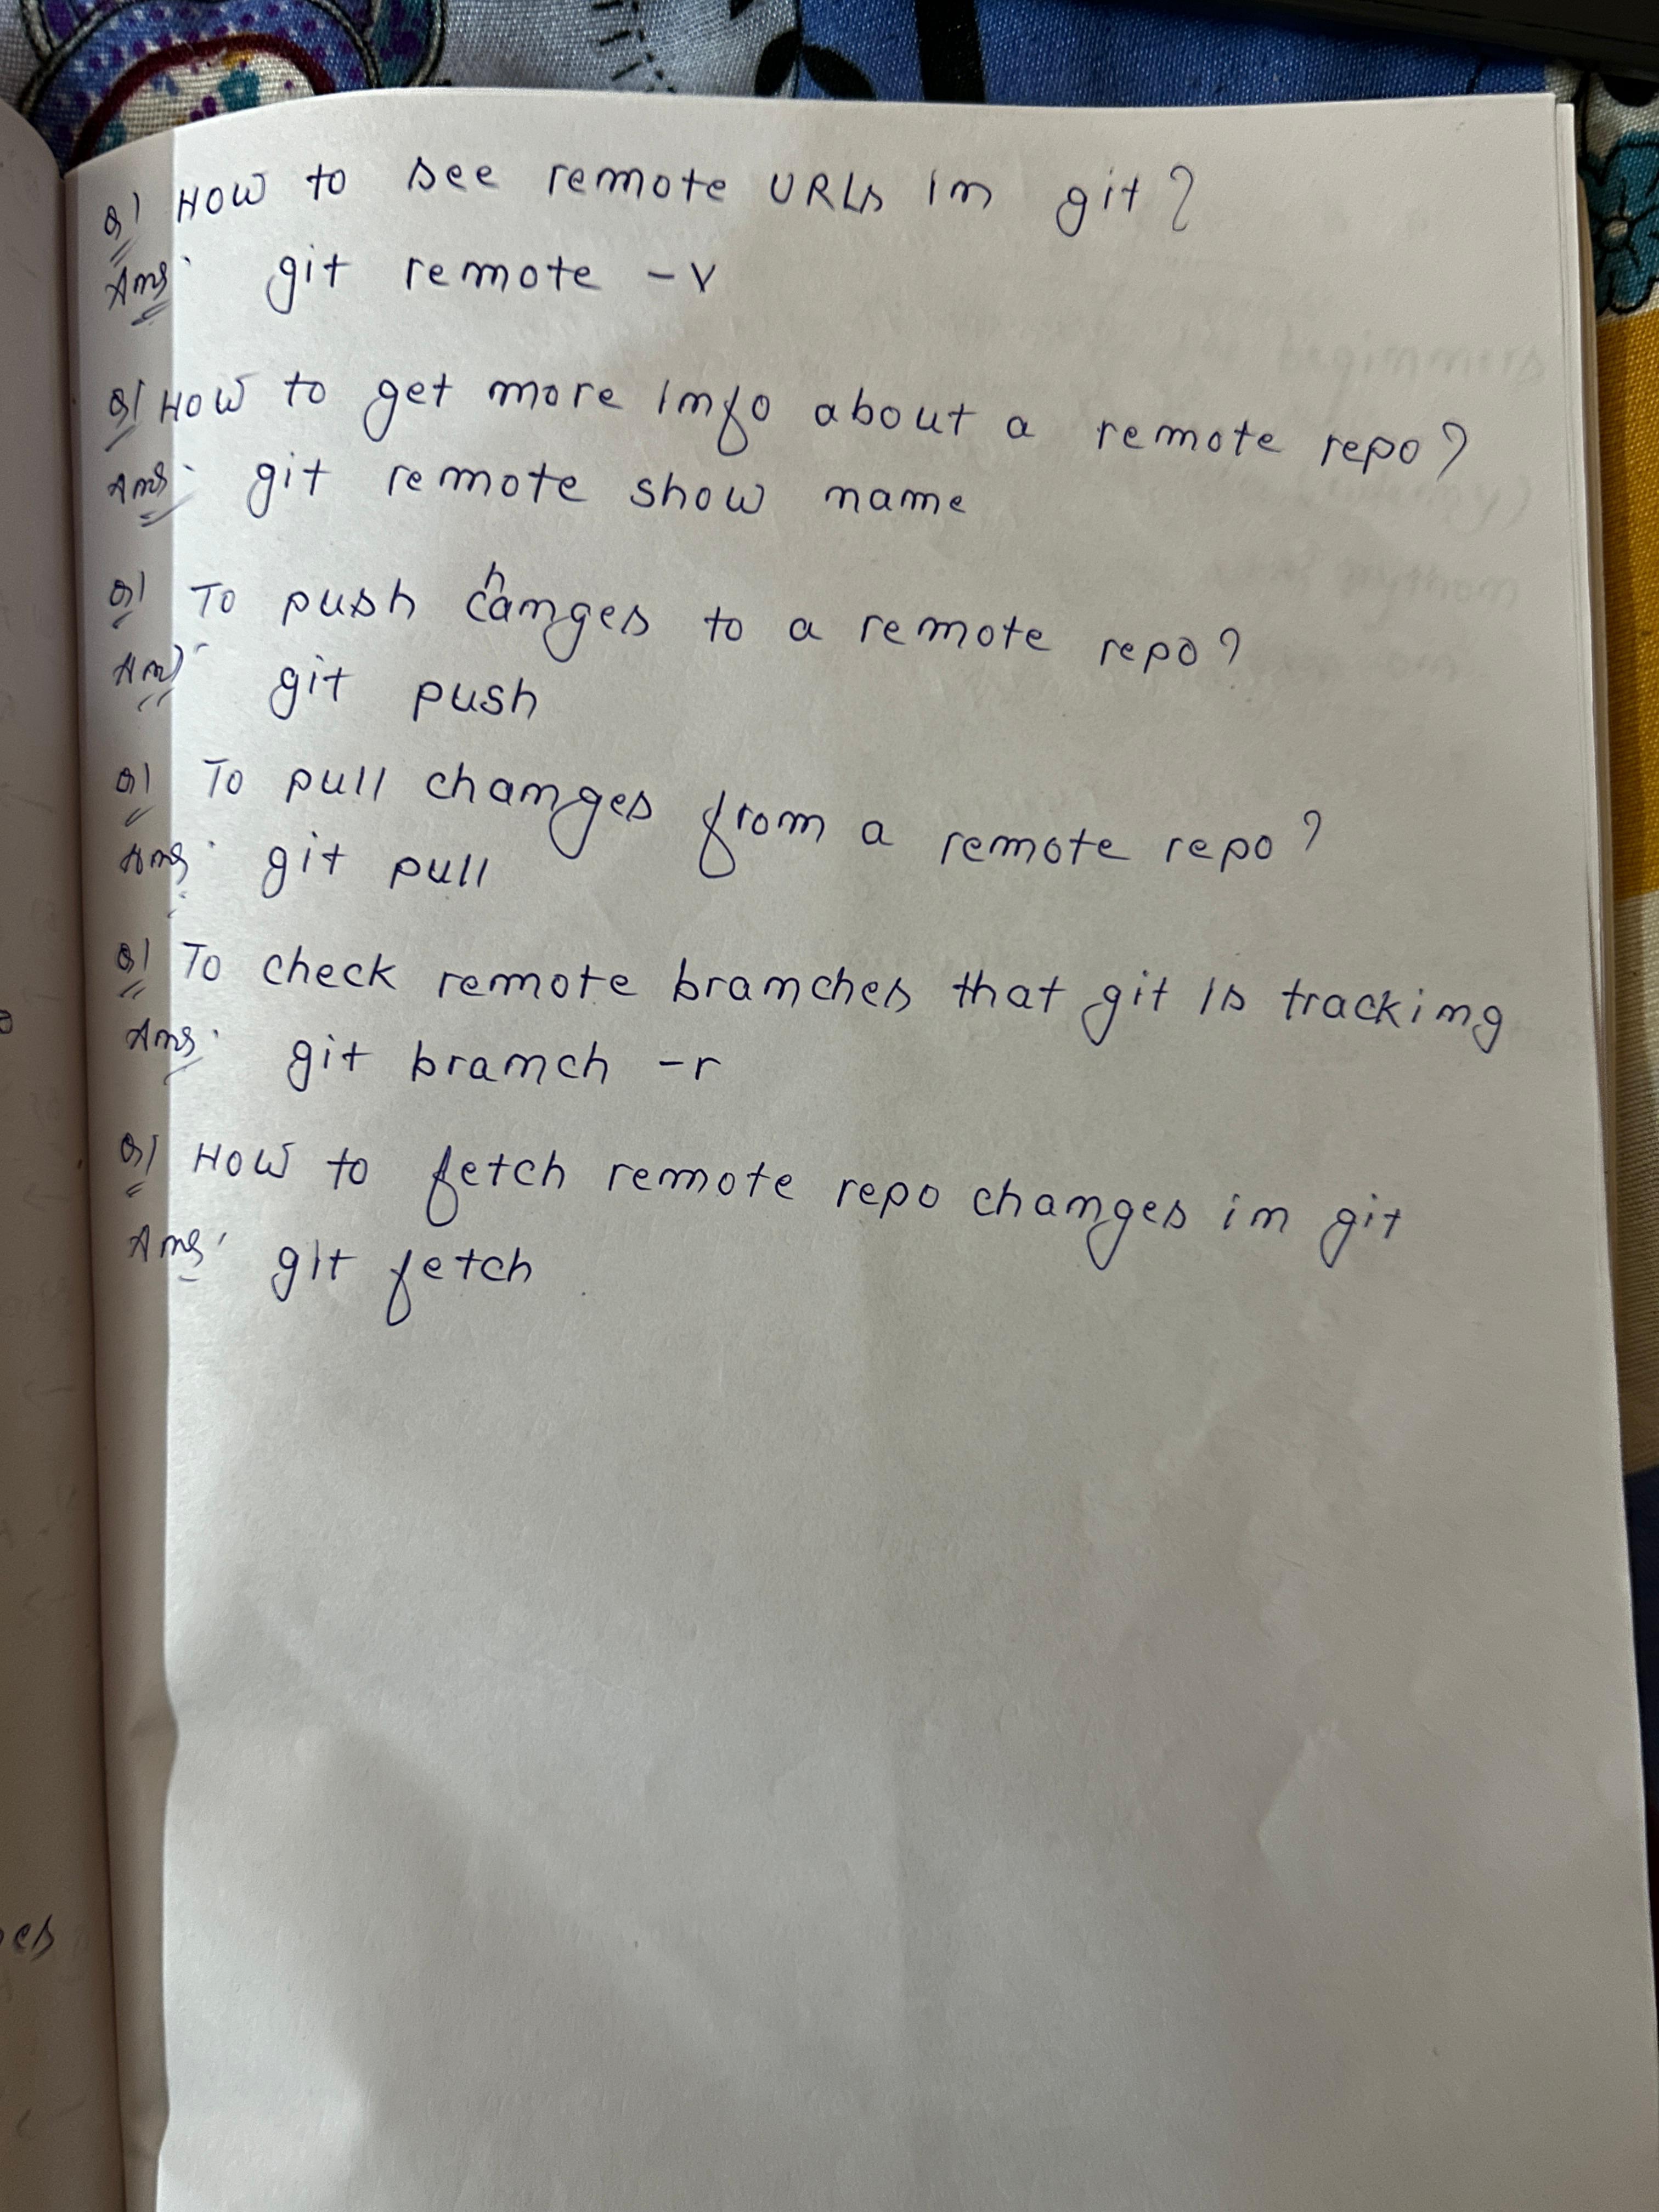 Q) How to see remote URLs in git?
Ans: git remote -v
Q) How to get more info about a remote repo?
Ans: git remote show name
Q) To push changes to a remote repo?
Ans: git push
Q) To pull changes from a remote repo?
Ans: git pull
Q) To check remote branches that git is tracking
Ans: git branch -r
Q) How to fetch remote repo changes in git
Ans: git fetch